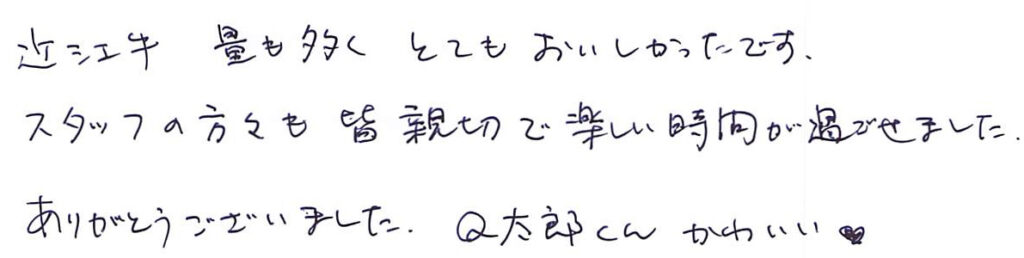 近江牛 量も多く とても おいしかったです.
スタッフの方々も 皆 親切で楽しい時間が過ごせました.
ありがとうございました. Q太郎くん かわいい♥